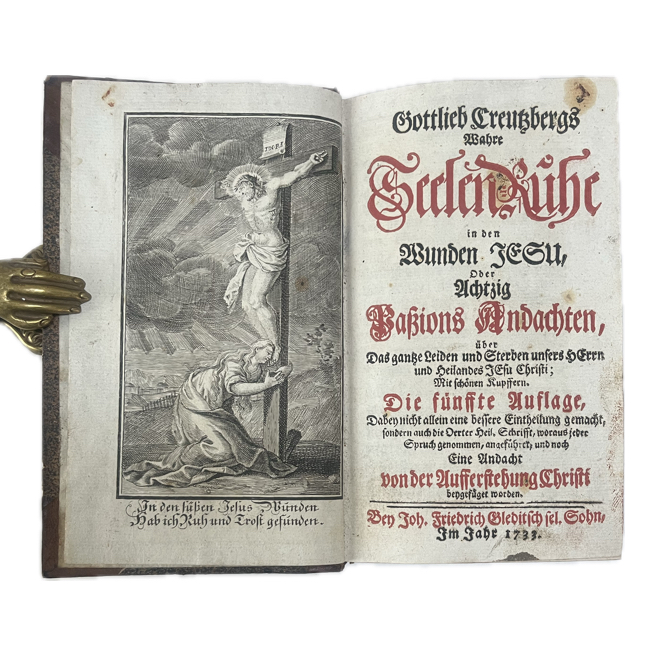 I.N.R.I
In den süßen Jesus Wunden
Hab ich Ruh und Trost gefunden.
Gottlieb Creutzbergs
Wahre
Seelen Ruhe
in den
Wunden JESU,
Oder
Achtzig
Paßions Andachten,
über
Das gantze Leiden und Sterben unsers HErrn
und Heilandes JEsu Christi;
Mit schönen Kupffern.
Die fünffte Auflage,
Dabey nicht allein eine bessere Eintheilung gemacht,
sondern auch die Oerter Heil. Schrifft, woraus jeder
Spruch genommen, angeführet, und noch
Eine Andacht
von der Aufferstehung Christi
beygefüget worden.
Bey Joh. Friedrich Gleditsch sel. Sohn,
Im Jahr 1733.